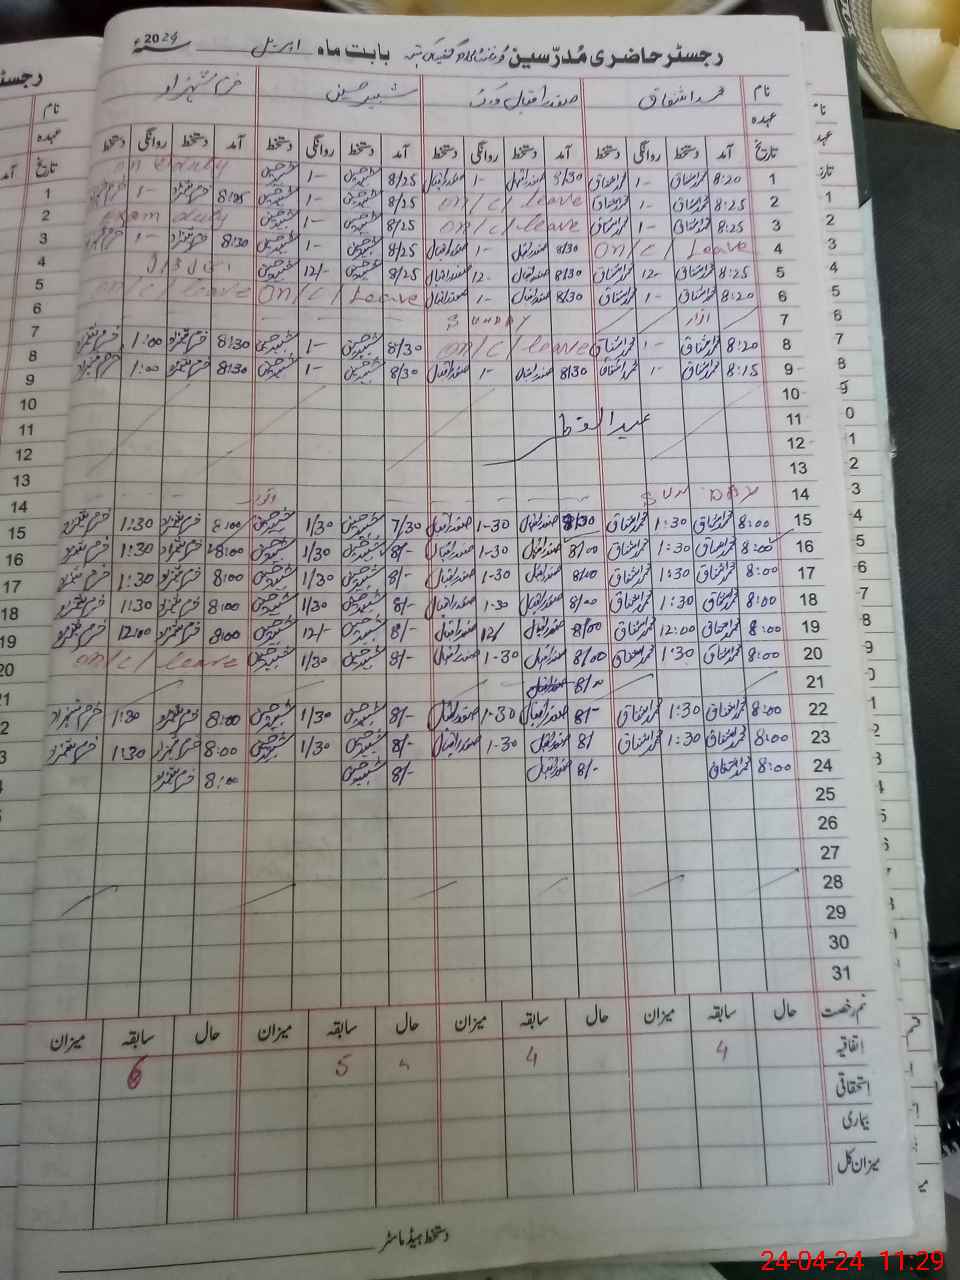 رجسٹر حاضری مُدرّسین بابت ماہ اپریل سنہ 2024ء
نام محمد اشفاق صفدر اقبال شبیر حسین خرم شہزاد
عہدہ
تاریخ آمد دستخط روانگی دستخط آمد دستخط روانگی دستخط آمد دستخط روانگی دستخط آمد دستخط روانگی دستخط
1 8:20 محمد اشفاق 1- محمد اشفاق 8/30 صفدر اقبال 1- صفدر اقبال 8/25 شبیر حسین 1- شبیر حسین on duty
2 8:25 محمد اشفاق 1- محمد اشفاق on/c/leave 8/25 شبیر حسین 1- شبیر حسین 8:25 خرم شہزاد 1- خرم شہزاد
3 8:25 محمد اشفاق 1- محمد اشفاق on/c/leave 8/25 شبیر حسین 1- شبیر حسین exam duty
4 on/c/Leave 8/30 صفدر اقبال 1- صفدر اقبال 8/25 شبیر حسین 1- شبیر حسین 8:30 خرم شہزاد 1- خرم شہزاد
5 8:25 محمد اشفاق 12- محمد اشفاق 8/30 صفدر اقبال 12- صفدر اقبال 8/25 شبیر حسین 12/- شبیر حسین
6 8:20 محمد اشفاق 1- محمد اشفاق 8/30 صفدر اقبال 1- صفدر اقبال on/c/Leave on/c/leave
7 اتوار SUNDAY
8 8:20 محمد اشفاق 1- محمد اشفاق on/c/leave 8/30 شبیر حسین 1- شبیر حسین 8:30 خرم شہزاد 1:00 خرم شہزاد
9 8:15 محمد اشفاق 1- محمد اشفاق 8/30 صفدر اقبال 1- صفدر اقبال 8/30 شبیر حسین 1- شبیر حسین 8:30 خرم شہزاد 1:00 خرم شہزاد
10
11 عید الفطر
12
13
14 SUNDAY اتوار
15 8:00 محمد اشفاق 1:30 محمد اشفاق 8/30 صفدر اقبال 1-30 صفدر اقبال 7/30 شبیر حسین 1/30 شبیر حسین 8:00 خرم شہزاد 1:30 خرم شہزاد
16 8:00 محمد اشفاق 1:30 محمد اشفاق 8/00 صفدر اقبال 1-30 صفدر اقبال 8/- شبیر حسین 1/30 شبیر حسین 8:00 خرم شہزاد 1:30 خرم شہزاد
17 8:00 محمد اشفاق 1:30 محمد اشفاق 8/00 صفدر اقبال 1-30 صفدر اقبال 8/- شبیر حسین 1/30 شبیر حسین 8:00 خرم شہزاد 1:30 خرم شہزاد
18 8:00 محمد اشفاق 1:30 محمد اشفاق 8/00 صفدر اقبال 1-30 صفدر اقبال 8/- شبیر حسین 1/30 شبیر حسین 8:00 خرم شہزاد 1:30 خرم شہزاد
19 8:00 محمد اشفاق 12:00 محمد اشفاق 8/00 صفدر اقبال 12/ صفدر اقبال 8/- شبیر حسین 12/- شبیر حسین 8:00 خرم شہزاد 12:00 خرم شہزاد
20 8:00 محمد اشفاق 1:30 محمد اشفاق 8/00 صفدر اقبال 1-30 صفدر اقبال 8/- شبیر حسین 1/30 شبیر حسین on/c/leave
21
22 8:00 محمد اشفاق 1:30 محمد اشفاق 8/- صفدر اقبال 1-30 صفدر اقبال 8/- شبیر حسین 1/30 شبیر حسین 8:00 خرم شہزاد 1:30 خرم شہزاد
23 8:00 محمد اشفاق 1:30 محمد اشفاق 8/ صفدر اقبال 1-30 صفدر اقبال 8/- شبیر حسین 1/30 شبیر حسین 8:00 خرم شہزاد 1:30 خرم شہزاد
24 8:00 محمد اشفاق 8/- صفدر اقبال 8/- شبیر حسین 8:00 خرم شہزاد
25
26
27
28
29
30
31
قسم رخصت حال سابقہ میزان حال سابقہ میزان حال سابقہ میزان حال سابقہ میزان
اتفاقیہ 4 4 5 6
استحقاقی
بیماری
میزان کل
دستخط ہیڈ ماسٹر
24-04-24 11:29